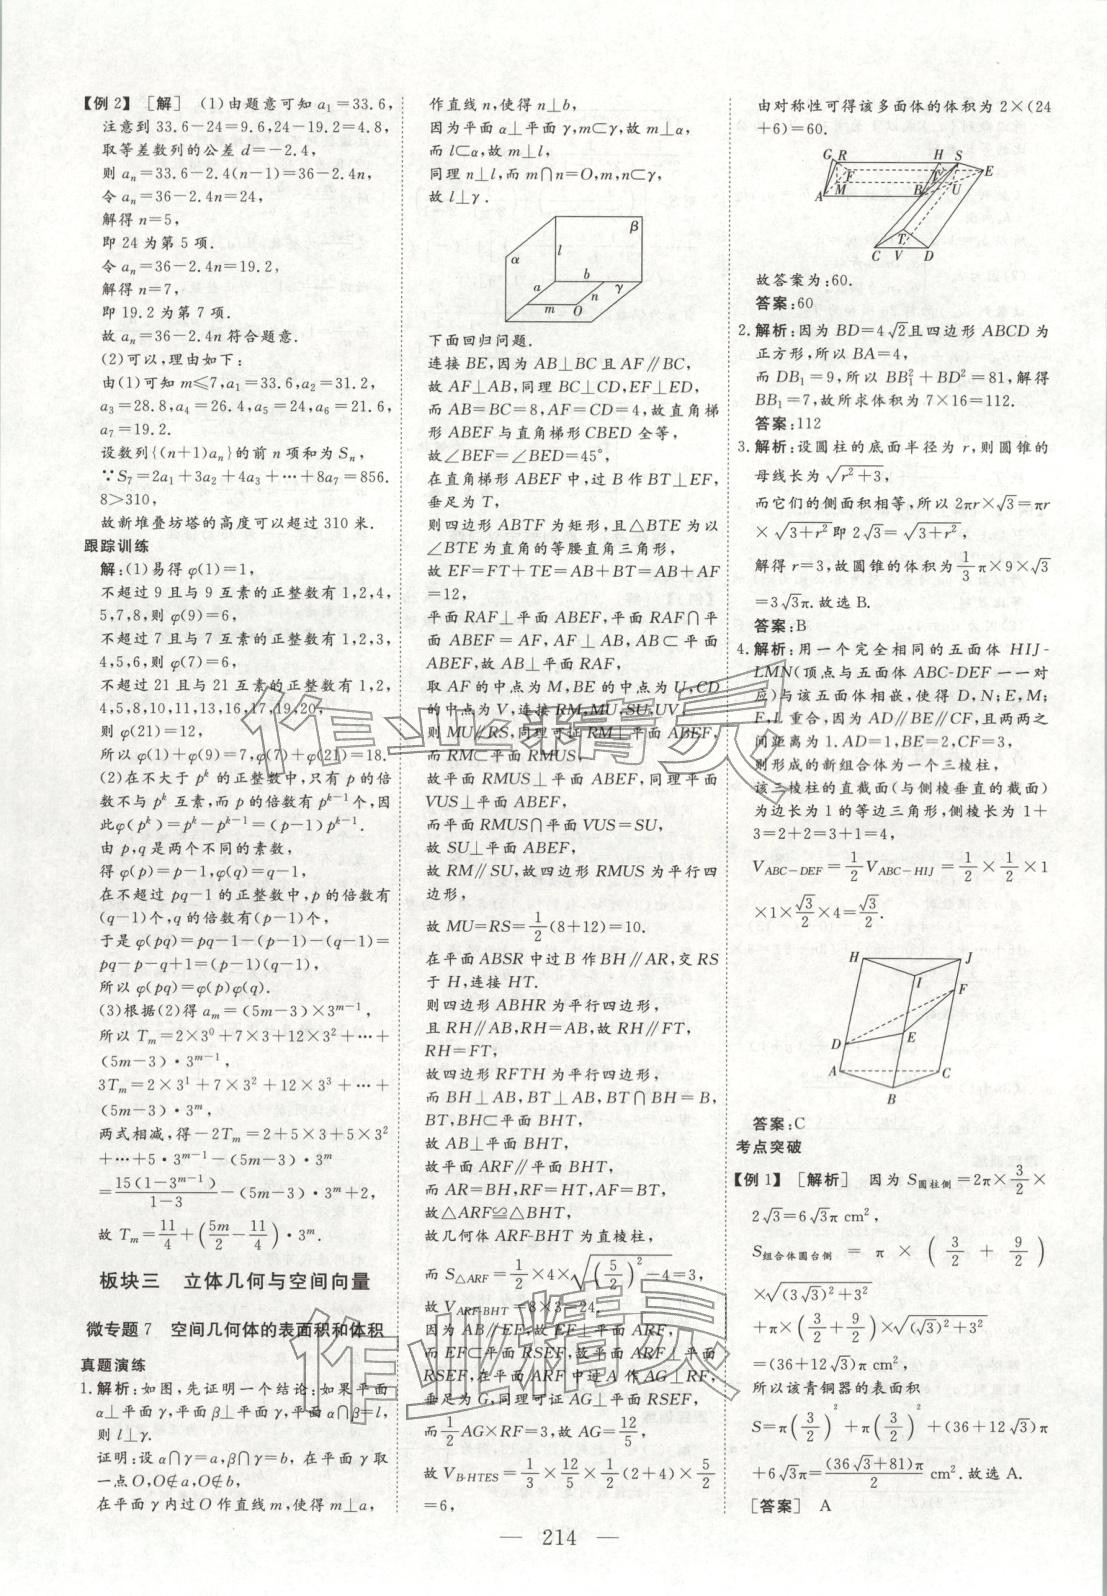 【例2】 [解] (1)由题意可知 a₁=33.6,
注意到 33.6-24=9.6,24-19.2=4.8,
取等差数列的公差 d=-2.4,
则 aₙ=33.6-2.4(n-1)=36-2.4n,
令 aₙ=36-2.4n=24,
解得 n=5,
即 24 为第 5 项.
令 aₙ=36-2.4n=19.2,
解得 n=7,
即 19.2 为第 7 项.
故 aₙ=36-2.4n 符合题意.
(2)可以,理由如下:
由(1)可知 m⩽7,a₁=33.6,a₂=31.2,
a₃=28.8,a₄=26.4,a₅=24,a₆=21.6,
a₇=19.2.
设数列{(n+1)aₙ}的前 n 项和为 Sₙ,
∵S₇=2a₁+3a₂+4a₃+⋯+8a₇=856.
8>310,
故新堆叠坊塔的高度可以超过 310 米.
跟踪训练
解:(1)易得 φ(1)=1,
不超过 9 且与 9 互素的正整数有 1,2,4,
5,7,8,则 φ(9)=6,
不超过 7 且与 7 互素的正整数有 1,2,3,
4,5,6,则 φ(7)=6,
不超过 21 且与 21 互素的正整数有 1,2,
4,5,8,10,11,13,16,17,19,20,
则 φ(21)=12,
所以 φ(1)+φ(9)=7,φ(7)+φ(21)=18.
(2)在不大于 pᵏ 的正整数中,只有 p 的倍
数不与 pᵏ 互素,而 p 的倍数有 pᵏ⁻¹ 个,因
此φ(pᵏ)=pᵏ-pᵏ⁻¹=(p-1)pᵏ⁻¹.
由 p,q 是两个不同的素数,
得 φ(p)=p-1,φ(q)=q-1,
在不超过 pq-1 的正整数中,p 的倍数有
(q-1)个,q 的倍数有(p-1)个,
于是 φ(pq)=pq-1-(p-1)-(q-1)=
pq-p-q+1=(p-1)(q-1),
所以 φ(pq)=φ(p)φ(q).
(3)根据(2)得 aₘ=(5m-3)×3ᵐ⁻¹,
所以 Tₘ=2×3⁰+7×3+12×3²+⋯+
(5m-3)·3ᵐ⁻¹,
3Tₘ=2×3¹+7×3²+12×3³+⋯+
(5m-3)·3ᵐ,
两式相减,得-2Tₘ=2+5×3+5×3²
+⋯+5·3ᵐ⁻¹-(5m-3)·3ᵐ
=15(1-3ᵐ⁻¹)/(1-3)-(5m-3)·3ᵐ+2,
故 Tₘ=11/4+(5m/2-11/4)·3ᵐ.
板块三 立体几何与空间向量
微专题 7 空间几何体的表面积和体积
真题演练
1.解析:如图,先证明一个结论:如果平面
α⊥平面 γ,平面β⊥平面 γ,平面 α∩β=l,
则 l⊥γ.
证明:设 α∩γ=a,β∩γ=b, 在平面 γ 取
一点 O,O∉a,O∉b,
在平面 γ 内过 O 作直线 m,使得 m⊥a,
作直线 n,使得 n⊥b,
因为平面 α⊥平面 γ,m⊂γ,故 m⊥α,
而 l⊂α,故 m⊥l,
同理 n⊥l,而 m∩n=O,m,n⊂γ,
故 l⊥γ.
α β l a b γ m n O
下面回归问题.
连接 BE,因为 AB⊥BC 且 AF∥BC,
故 AF⊥AB,同理 BC⊥CD,EF⊥ED,
而 AB=BC=8,AF=CD=4,故直角梯
形 ABEF 与直角梯形 CBED 全等,
故∠BEF=∠BED=45°,
在直角梯形 ABEF 中,过 B 作 BT⊥EF,
垂足为 T,
则四边形 ABTF 为矩形,且△BTE 为以
∠BTE 为直角的等腰直角三角形,
故 EF=FT+TE=AB+BT=AB+AF
=12,
平面 RAF⊥平面 ABEF,平面 RAF∩平
面 ABEF=AF,AF⊥AB,AB⊂平面
ABEF,故 AB⊥平面 RAF,
取 AF 的中点为 M,BE 的中点为 U,CD
的中点为 V,连接 RM,MU,SU,UV,
则 MU∥RS,同理可证 RM⊥平面 ABEF,
而 RM⊂平面 RMUS,
故平面 RMUS⊥平面 ABEF,同理平面
VUS⊥平面 ABEF,
而平面 RMUS∩平面 VUS=SU,
故 SU⊥平面 ABEF,
故 RM∥SU,故四边形 RMUS 为平行四
边形,
故 MU=RS=1/2(8+12)=10.
在平面 ABSR 中过 B 作 BH∥AR,交 RS
于 H,连接 HT.
则四边形 ABHR 为平行四边形,
且 RH∥AB,RH=AB,故 RH∥FT,
RH=FT,
故四边形 RFTH 为平行四边形,
而 BH⊥AB,BT⊥AB,BT∩BH=B,
BT,BH⊂平面 BHT,
故 AB⊥平面 BHT,
故平面 ARF∥平面 BHT,
而 AR=BH,RF=HT,AF=BT,
故△ARF≌△BHT,
故几何体 ARF-BHT 为直棱柱,
而 S△ARF=1/2×4×√((5/2)²-4)=3,
故 V_ARF-BHT=8×3=24,
因为 AB∥EF,故 EF⊥平面 ARF,
而 EF⊂平面 RSEF,故平面 ARF⊥平面
RSEF,在平面 ARF 中过 A 作 AG⊥RF,
垂足为 G,同理可证 AG⊥平面 RSEF,
而1/2AG×RF=3,故 AG=12/5,
故 V_B-HTES=1/3×12/5×1/2(2+4)×5/2
=6,
由对称性可得该多面体的体积为 2×(24
+6)=60.
G R H S E F M A B U T C V D
故答案为:60.
答案:60
2.解析:因为 BD=4√2且四边形 ABCD 为
正方形,所以 BA=4,
而 DB₁=9,所以 BB₁²+BD²=81,解得
BB₁=7,故所求体积为 7×16=112.
答案:112
3.解析:设圆柱的底面半径为 r,则圆锥的
母线长为 √(r²+3),
而它们的侧面积相等,所以 2πr×√3=πr
×√(3+r²)即 2√3=√(3+r²),
解得 r=3,故圆锥的体积为 1/3π×9×√3
=3√3π.故选 B.
答案:B
4.解析:用一个完全相同的五面体 HIJ-
LMN(顶点与五面体 ABC-DEF 一一对
应)与该五面体相嵌,使得 D,N;E,M;
F,L 重合,因为 AD∥BE∥CF,且两两之
间距离为 1.AD=1,BE=2,CF=3,
则形成的新组合体为一个三棱柱,
该三棱柱的直截面(与侧棱垂直的截面)
为边长为 1 的等边三角形,侧棱长为 1+
3=2+2=3+1=4,
V_ABC-DEF=1/2V_ABC-HIJ=1/2×1/2×1
×1×√3/2×4=√3/2.
H J I F D E A C B
答案:C
考点突破
【例1】 [解析] 因为 S圆柱侧=2π×3/2×
2√3=6√3π cm²,
S组合体圆台侧=π×(3/2+9/2)
×√((3√3)²+3²)
+π×(3/2+9/2)×√((√3)²+3²)
=(36+12√3)π cm²,
所以该青铜器的表面积
S=π(3/2)²+π(3/2)²+(36+12√3)π
+6√3π=(36√3+81)π/2 cm².故选 A.
[答案] A
— 214 —
作业精灵
作业精灵